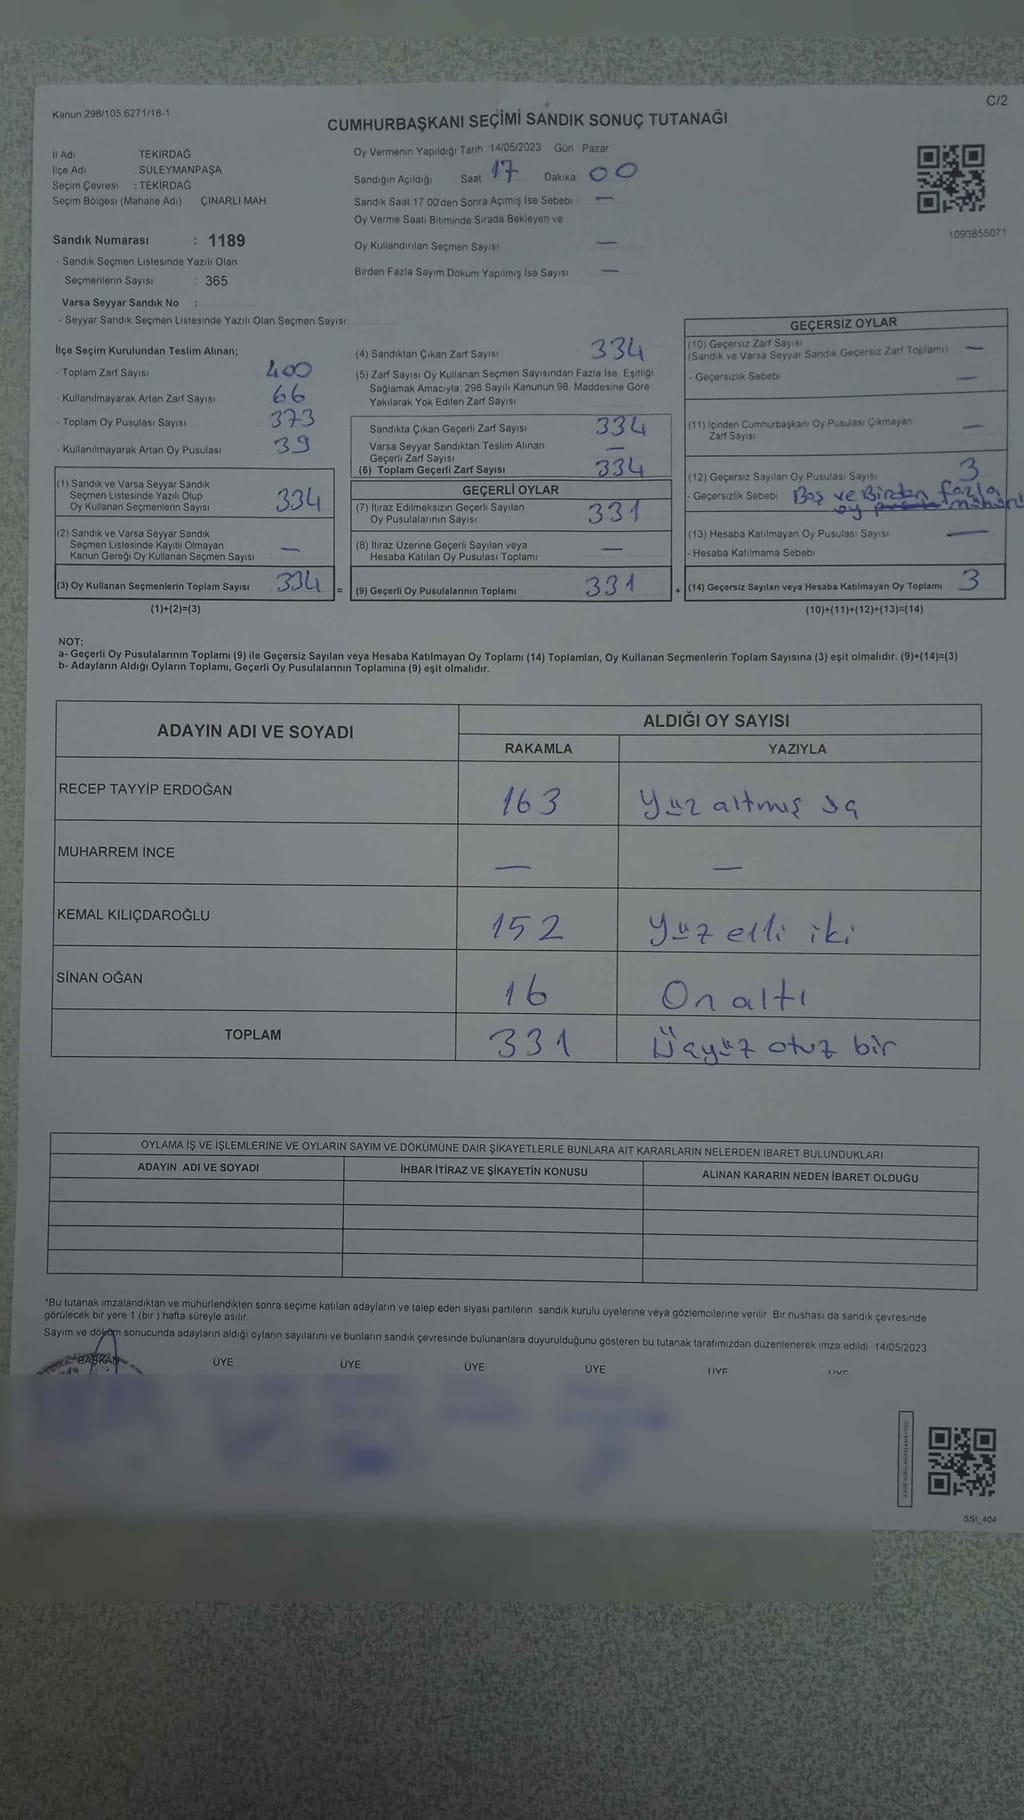 Kanun 298/105 6271/18-1
C/2
CUMHURBAŞKANI SEÇİMİ SANDIK SONUÇ TUTANAĞI
İl Adı TEKİRDAĞ
İlçe Adı SÜLEYMANPAŞA
Seçim Çevresi : TEKİRDAĞ
Seçim Bölgesi (Mahalle Adı) ÇINARLI MAH
Oy Vermenin Yapıldığı Tarih 14/05/2023 Gün Pazar
Sandığın Açıldığı Saat 17 Dakika 00
Sandık Saat 17 00'den Sonra Açımış İse Sebebi —
Oy Verme Saati Bitiminde Sırada Bekleyen ve
Oy Kullandırılan Seçmen Sayısı —
Birden Fazla Sayım Döküm Yapılmış İse Sayısı —
1093855071
Sandık Numarası : 1189
- Sandık Seçmen Listesinde Yazılı Olan
Seçmenlerin Sayısı : 365
Varsa Seyyar Sandık No :
- Seyyar Sandık Seçmen Listesinde Yazılı Olan Seçmen Sayısı
İlçe Seçim Kurulundan Teslim Alınan;
- Toplam Zarf Sayısı 400
- Kullanılmayarak Artan Zarf Sayısı 66
- Toplam Oy Pusulası Sayısı 373
- Kullanılmayarak Artan Oy Pusulası 39
(1) Sandık ve Varsa Seyyar Sandık
Seçmen Listesinde Yazılı Olup
Oy Kullanan Seçmenlerin Sayısı 334
(2) Sandık ve Varsa Seyyar Sandık
Seçmen Listesinde Kayıtlı Olmayan
Kanun Gereği Oy Kullanan Seçmen Sayısı —
(3) Oy Kullanan Seçmenlerin Toplam Sayısı 334 =
(1)+(2)=(3)
(4) Sandıktan Çıkan Zarf Sayısı 334
(5) Zarf Sayısı Oy Kullanan Seçmen Sayısından Fazla İse, Eşitliği
Sağlamak Amacıyla, 298 Sayılı Kanunun 98. Maddesine Göre
Yakılarak Yok Edilen Zarf Sayısı
Sandıkta Çıkan Geçerli Zarf Sayısı 334
Varsa Seyyar Sandıktan Teslim Alınan
Geçerli Zarf Sayısı —
(6) Toplam Geçerli Zarf Sayısı 334
GEÇERLİ OYLAR
(7) İtiraz Edilmeksizin Geçerli Sayılan
Oy Pusulalarının Sayısı 331
(8) İtiraz Üzerine Geçerli Sayılan veya
Hesaba Katılan Oy Pusulası Toplamı —
(9) Geçerli Oy Pusulalarının Toplamı 331 +
GEÇERSİZ OYLAR
(10) Geçersiz Zarf Sayısı
(Sandık ve Varsa Seyyar Sandık Geçersiz Zarf Toplamı) —
- Geçersizlik Sebebi —
(11) İçinden Cumhurbaşkanı Oy Pusulası Çıkmayan
Zarf Sayısı —
(12) Geçersiz Sayılan Oy Pusulası Sayısı 3
- Geçersizlik Sebebi Boş ve Birden fazla
oy mühürü
(13) Hesaba Katılmayan Oy Pusulası Sayısı —
- Hesaba Katılmama Sebebi
(14) Geçersiz Sayılan veya Hesaba Katılmayan Oy Toplamı 3
(10)+(11)+(12)+(13)=(14)
NOT:
a- Geçerli Oy Pusulalarının Toplamı (9) ile Geçersiz Sayılan veya Hesaba Katılmayan Oy Toplamı (14) Toplamları, Oy Kullanan Seçmenlerin Toplam Sayısına (3) eşit olmalıdır. (9)+(14)=(3)
b- Adayların Aldığı Oyların Toplamı, Geçerli Oy Pusulalarının Toplamına (9) eşit olmalıdır.
ADAYIN ADI VE SOYADI ALDIĞI OY SAYISI
RAKAMLA YAZIYLA
RECEP TAYYİP ERDOĞAN 163 Yüz altmış
MUHARREM İNCE — —
KEMAL KILIÇDAROĞLU 152 Yüz elli iki
SİNAN OĞAN 16 On altı
TOPLAM 331 Üçyüz otuz bir
OYLAMA İŞ VE İŞLEMLERİNE VE OYLARIN SAYIM VE DÖKÜMÜNE DAİR ŞİKAYETLERLE BUNLARA AİT KARARLARIN NELERDEN İBARET BULUNDUKLARI
ADAYIN ADI VE SOYADI İHBAR İTİRAZ VE ŞİKAYETİN KONUSU ALINAN KARARIN NEDEN İBARET OLDUĞU
*Bu tutanak imzalandıktan ve mühürlendikten sonra seçime katılan adayların ve talep eden siyasi partilerin sandık kurulu üyelerine veya gözlemcilerine verilir. Bir nüshası da sandık çevresinde
görülecek bir yere 1 (bir ) hafta süreyle asılır.
Sayım ve döküm sonucunda adayların aldığı oyların sayılarını ve bunların sandık çevresinde bulunanlara duyurulduğunu gösteren bu tutanak tarafımızdan düzenlenerek imza edildi 14/05/2023
BAŞKAN ÜYE ÜYE ÜYE ÜYE ÜYE ÜYE
SSI_404